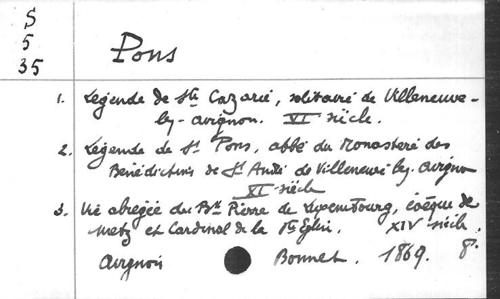 S
5
35
Pons
1. Légende de Ste Cazarie, solitaire de Villeneuve-
lez-avignon. VIe siècle.
2. Légende de St Pons, abbé du Monastère des
Bénédictins de St André de Villeneuve lez-avignon
XIe siècle
3. Vie abrégée du Bx Pierre de Luxembourg, évêque de
Metz et Cardinal de la Ste Eglise. XIVe siècle.
Avignon Bonnet. 1869. 8º.